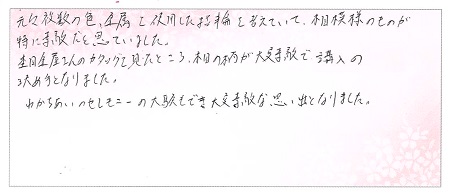 元々複数の色、金属を使用した指輪を考えていて、木目模様のものが
特に素敵だと思っていました。
杢目金屋さんのカタログを見たところ、木目の柄が大変素敵で購入の
決め手となりました。
わかちあいのセレモニーの体験もでき大変素敵な思い出となりました。